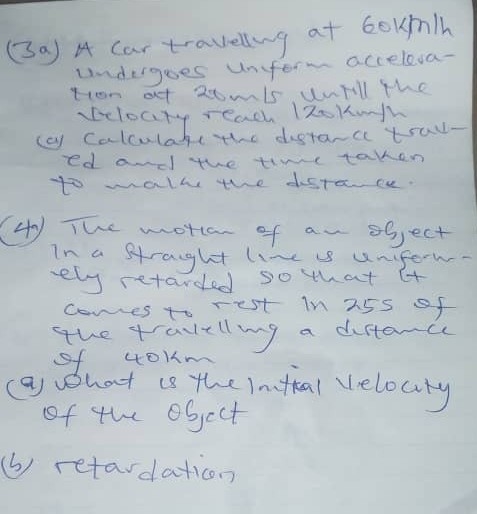 (3a) A car travelling at 60km/h
undergoes uniform accelera-
tion at 20m/s untill the
velocity reach 120km/h
(a) calculate the distance trav-
ed and the time taken
to make the distance.
(4a) The motion of an object
in a straight line is uniform-
ely retarded so that it
comes to rest in 25s of
the travelling a distance
of 40km
(a) what is the initial velocity
of the object
(b) retardation